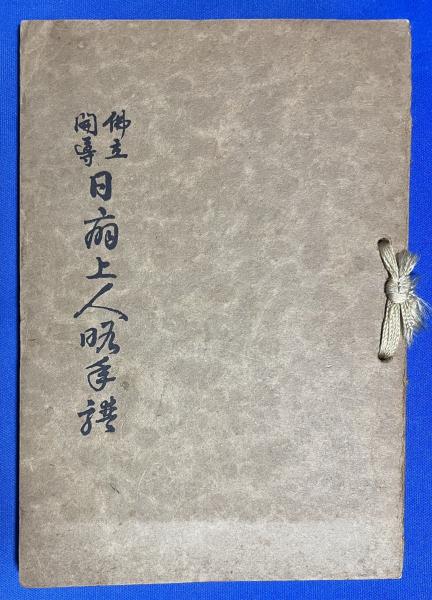 佛立
開導
日扇上人略年譜